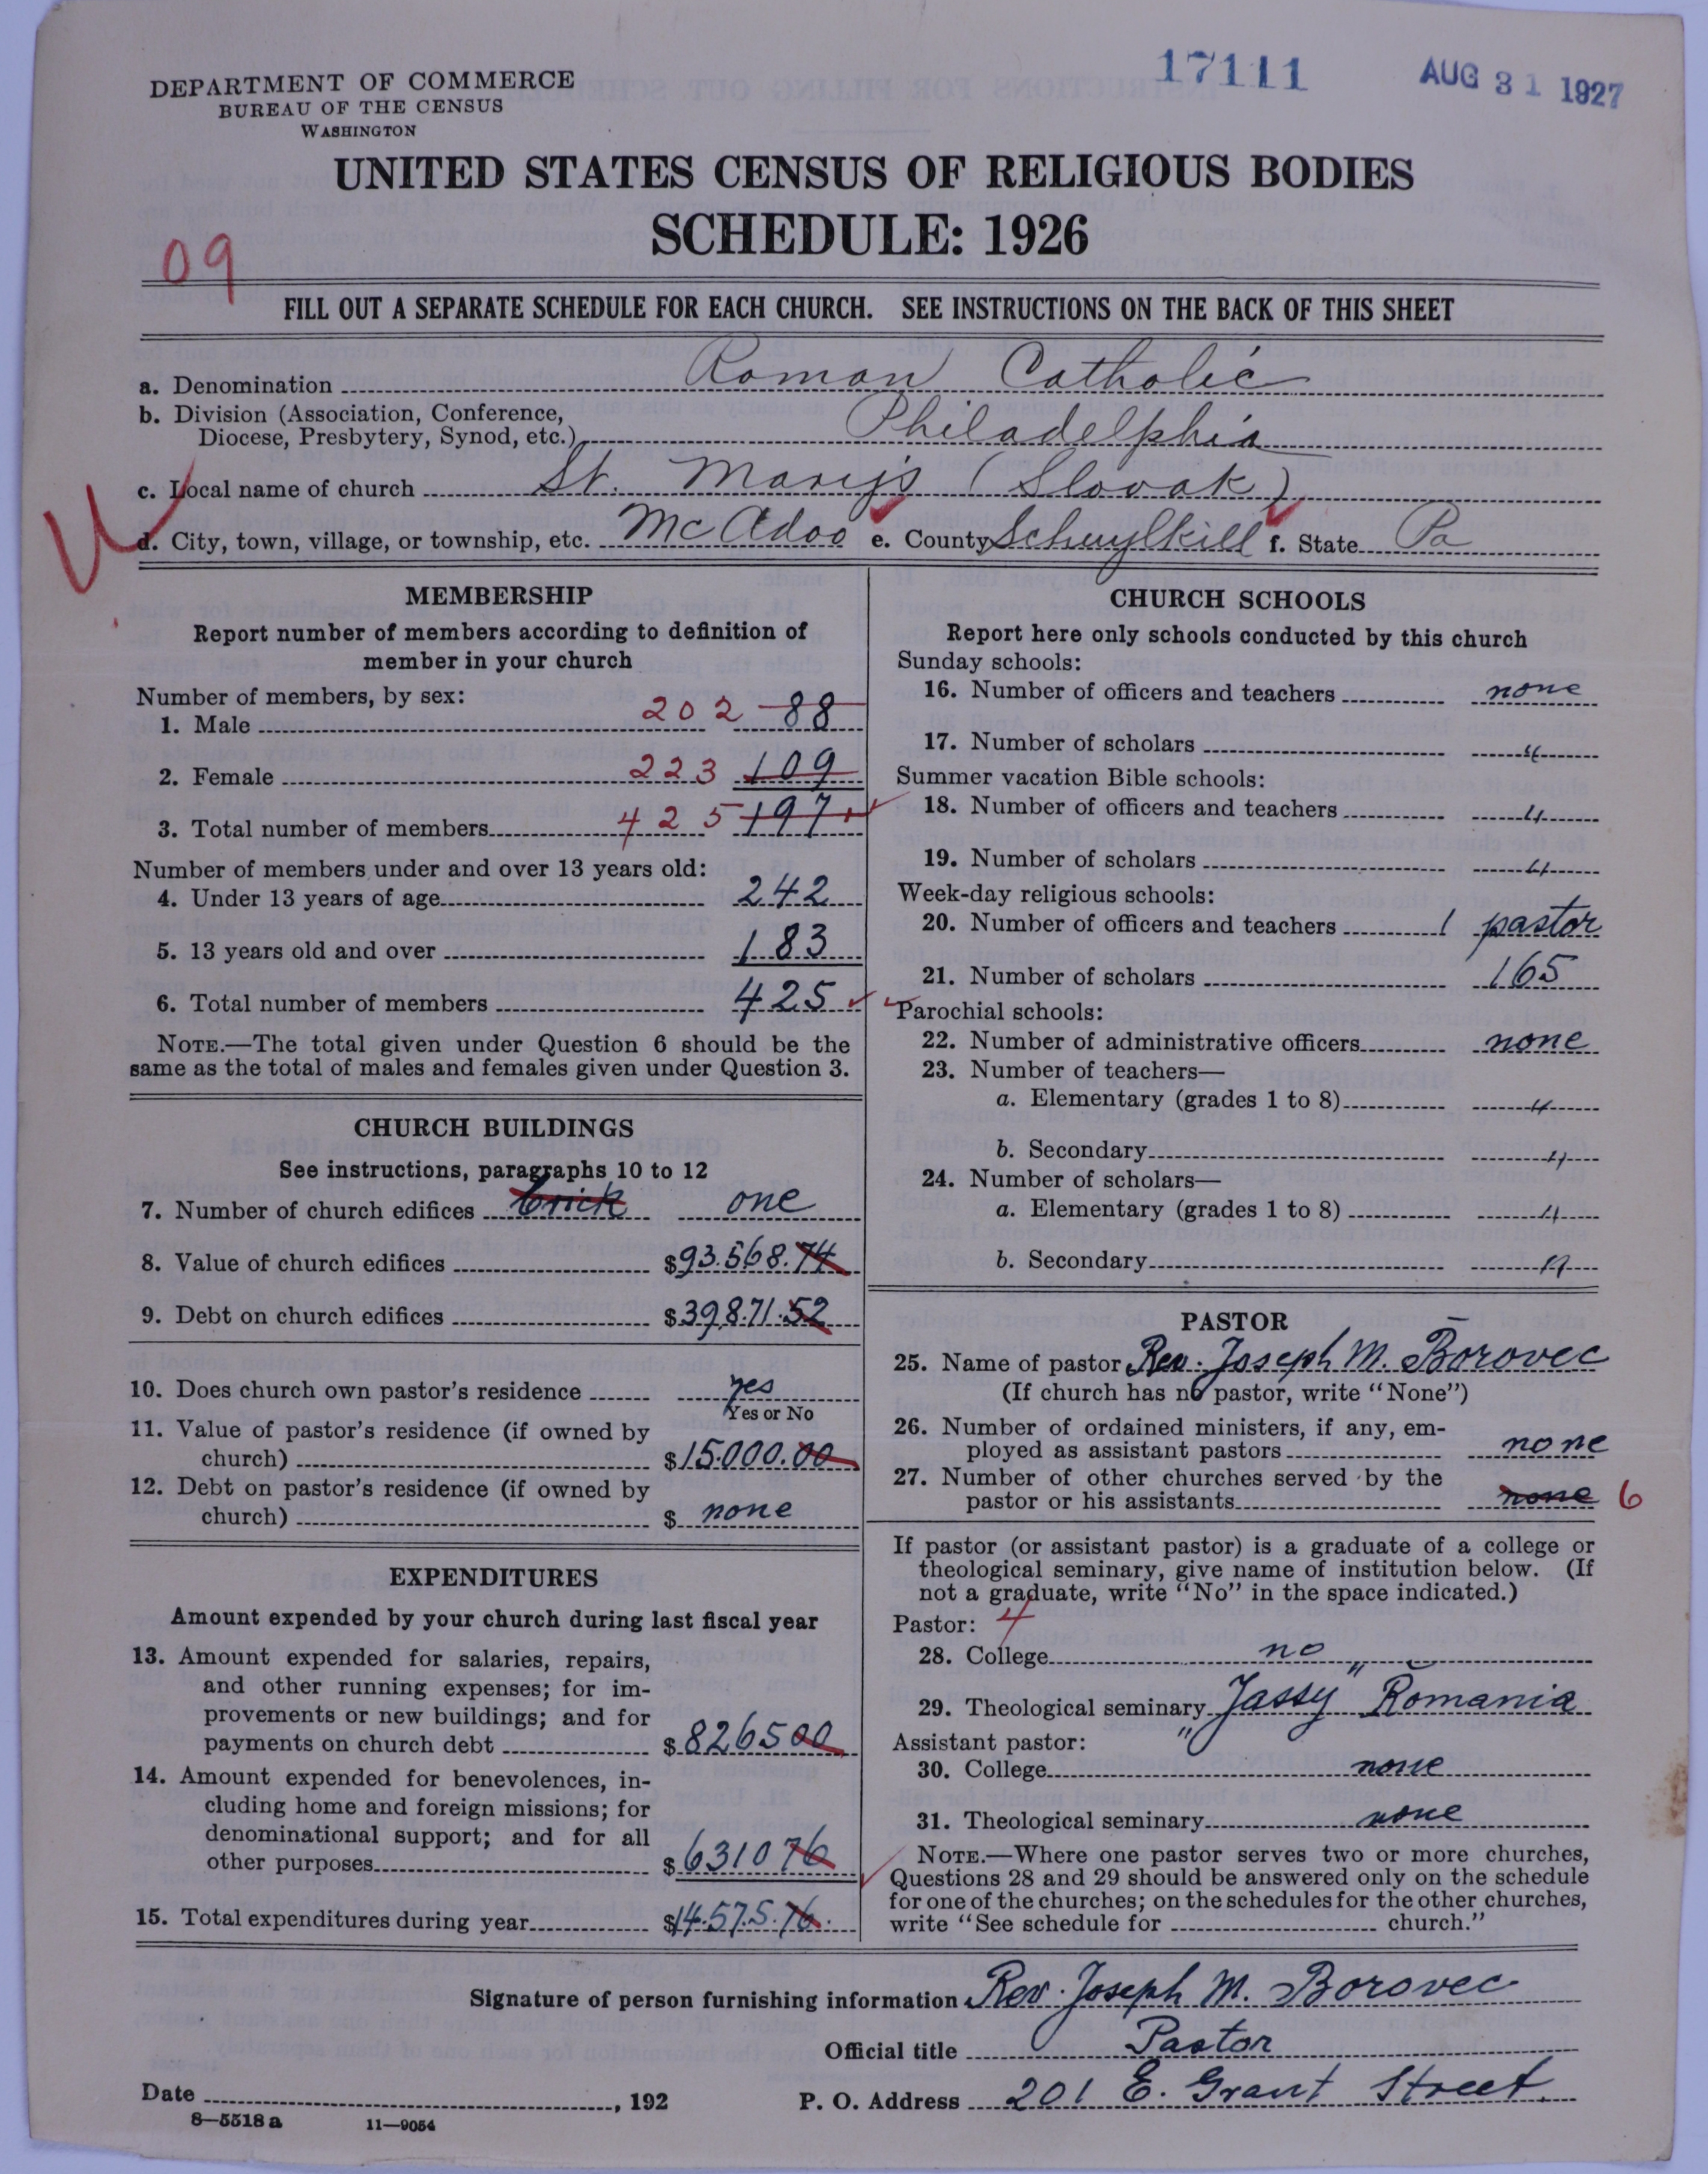 17111
AUG 31 1927
DEPARTMENT OF COMMERCE
BUREAU OF THE CENSUS
WASHINGTON
UNITED STATES CENSUS OF RELIGIOUS BODIES
SCHEDULE: 1926
09
FILL OUT A SEPARATE SCHEDULE FOR EACH CHURCH. SEE INSTRUCTIONS ON THE BACK OF THIS SHEET
a. Denomination Roman Catholic
b. Division (Association, Conference,
Diocese, Presbytery, Synod, etc.) Philadelphia
c. Local name of church St. Mary's (Slovak)
d. City, town, village, or township, etc. McAdoo e. County Schuylkill f. State Pa
MEMBERSHIP
Report number of members according to definition of
member in your church
Number of members, by sex:
1. Male 202 88
2. Female 223 109
3. Total number of members 425 197
Number of members under and over 13 years old:
4. Under 13 years of age 242
5. 13 years old and over 183
6. Total number of members 425
NOTE.—The total given under Question 6 should be the
same as the total of males and females given under Question 3.
CHURCH BUILDINGS
See instructions, paragraphs 10 to 12
7. Number of church edifices brick one
8. Value of church edifices $93.568.74
9. Debt on church edifices $39.871.52
10. Does church own pastor's residence yes
Yes or No
11. Value of pastor's residence (if owned by
church) $15.000.00
12. Debt on pastor's residence (if owned by
church) $ none
EXPENDITURES
Amount expended by your church during last fiscal year
13. Amount expended for salaries, repairs,
and other running expenses; for im-
provements or new buildings; and for
payments on church debt $826500
14. Amount expended for benevolences, in-
cluding home and foreign missions; for
denominational support; and for all
other purposes $631076
15. Total expenditures during year $14.575.76.
CHURCH SCHOOLS
Report here only schools conducted by this church
Sunday schools:
16. Number of officers and teachers none
17. Number of scholars "
Summer vacation Bible schools:
18. Number of officers and teachers "
19. Number of scholars "
Week-day religious schools:
20. Number of officers and teachers 1 pastor
21. Number of scholars 165
Parochial schools:
22. Number of administrative officers none
23. Number of teachers—
a. Elementary (grades 1 to 8) "
b. Secondary "
24. Number of scholars—
a. Elementary (grades 1 to 8) "
b. Secondary "
PASTOR
25. Name of pastor Rev. Joseph M. Borovec
(If church has no pastor, write "None")
26. Number of ordained ministers, if any, em-
ployed as assistant pastors none
27. Number of other churches served by the
pastor or his assistants none 6
If pastor (or assistant pastor) is a graduate of a college or
theological seminary, give name of institution below. (If
not a graduate, write "No" in the space indicated.)
Pastor: 4
28. College no
29. Theological seminary "Jassy" Romania
Assistant pastor:
30. College none
31. Theological seminary none
NOTE.—Where one pastor serves two or more churches,
Questions 28 and 29 should be answered only on the schedule
for one of the churches; on the schedules for the other churches,
write "See schedule for church."
Signature of person furnishing information Rev. Joseph M. Borovec
Official title Pastor
Date , 192 P. O. Address 201 E. Grant Street.
8—5518 a 11—9054